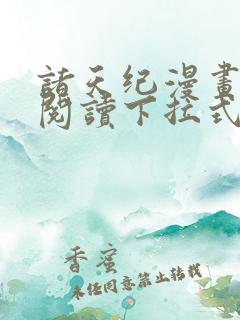 諸天纪漫畫
閱讀下拉式
香蜜
未经同意禁止转载